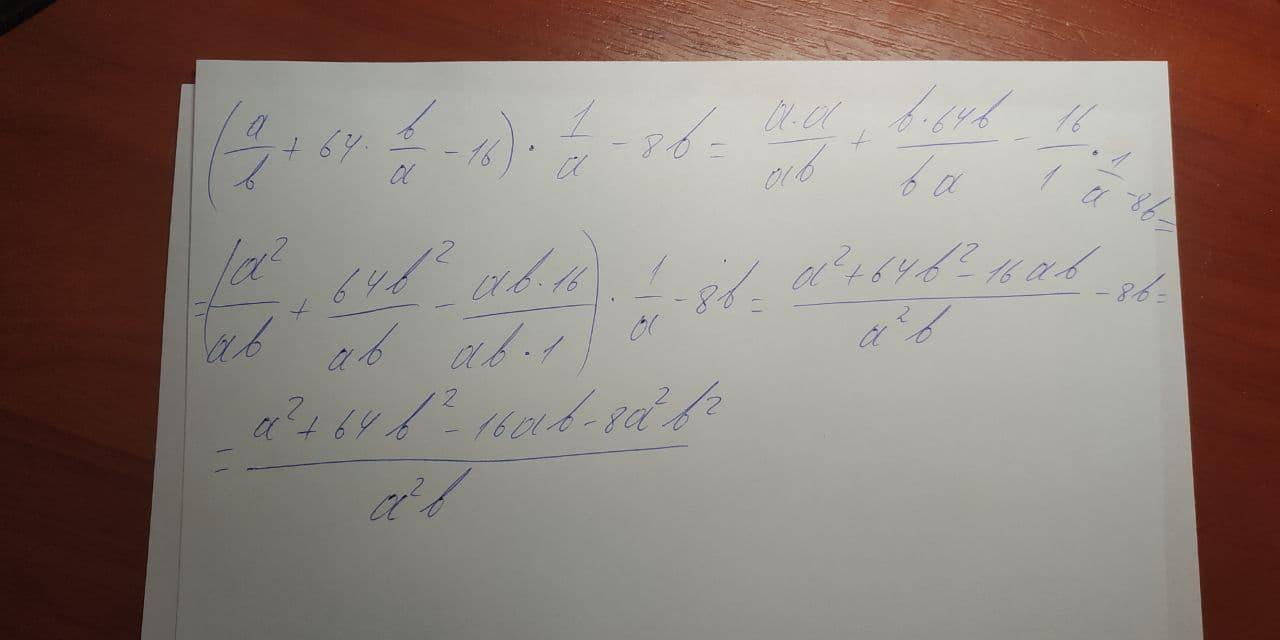 (a/b + 64 · b/a - 16) · 1/a - 8b = a·a/ab + b·64b/ba - 16/1 · 1/a - 8b =
= (a²/ab + 64b²/ab - ab·16/ab·1) · 1/a - 8b = a²+64b²-16ab/a²b - 8b =
= a²+64b²-16ab-8a²b²/a²b